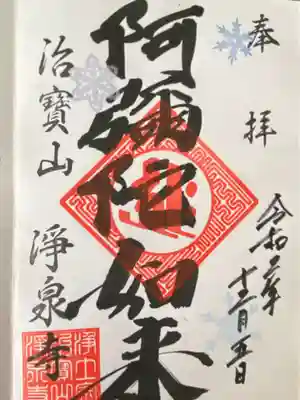 奉拝
令和二年十二月五日
阿彌陀如来
治寶山 淨泉寺